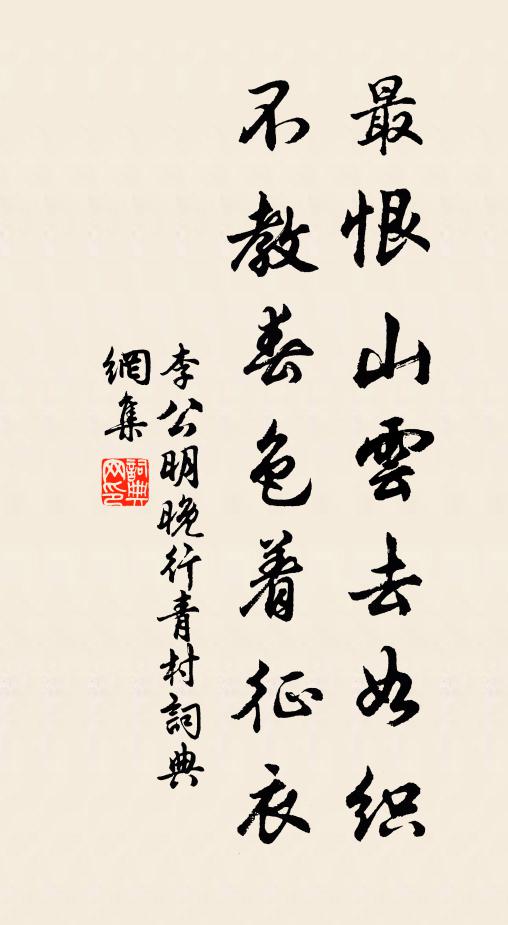 最恨山雲去如织
不教春色着征衣
李公明晚行青村詞典
網集
詞典
网印